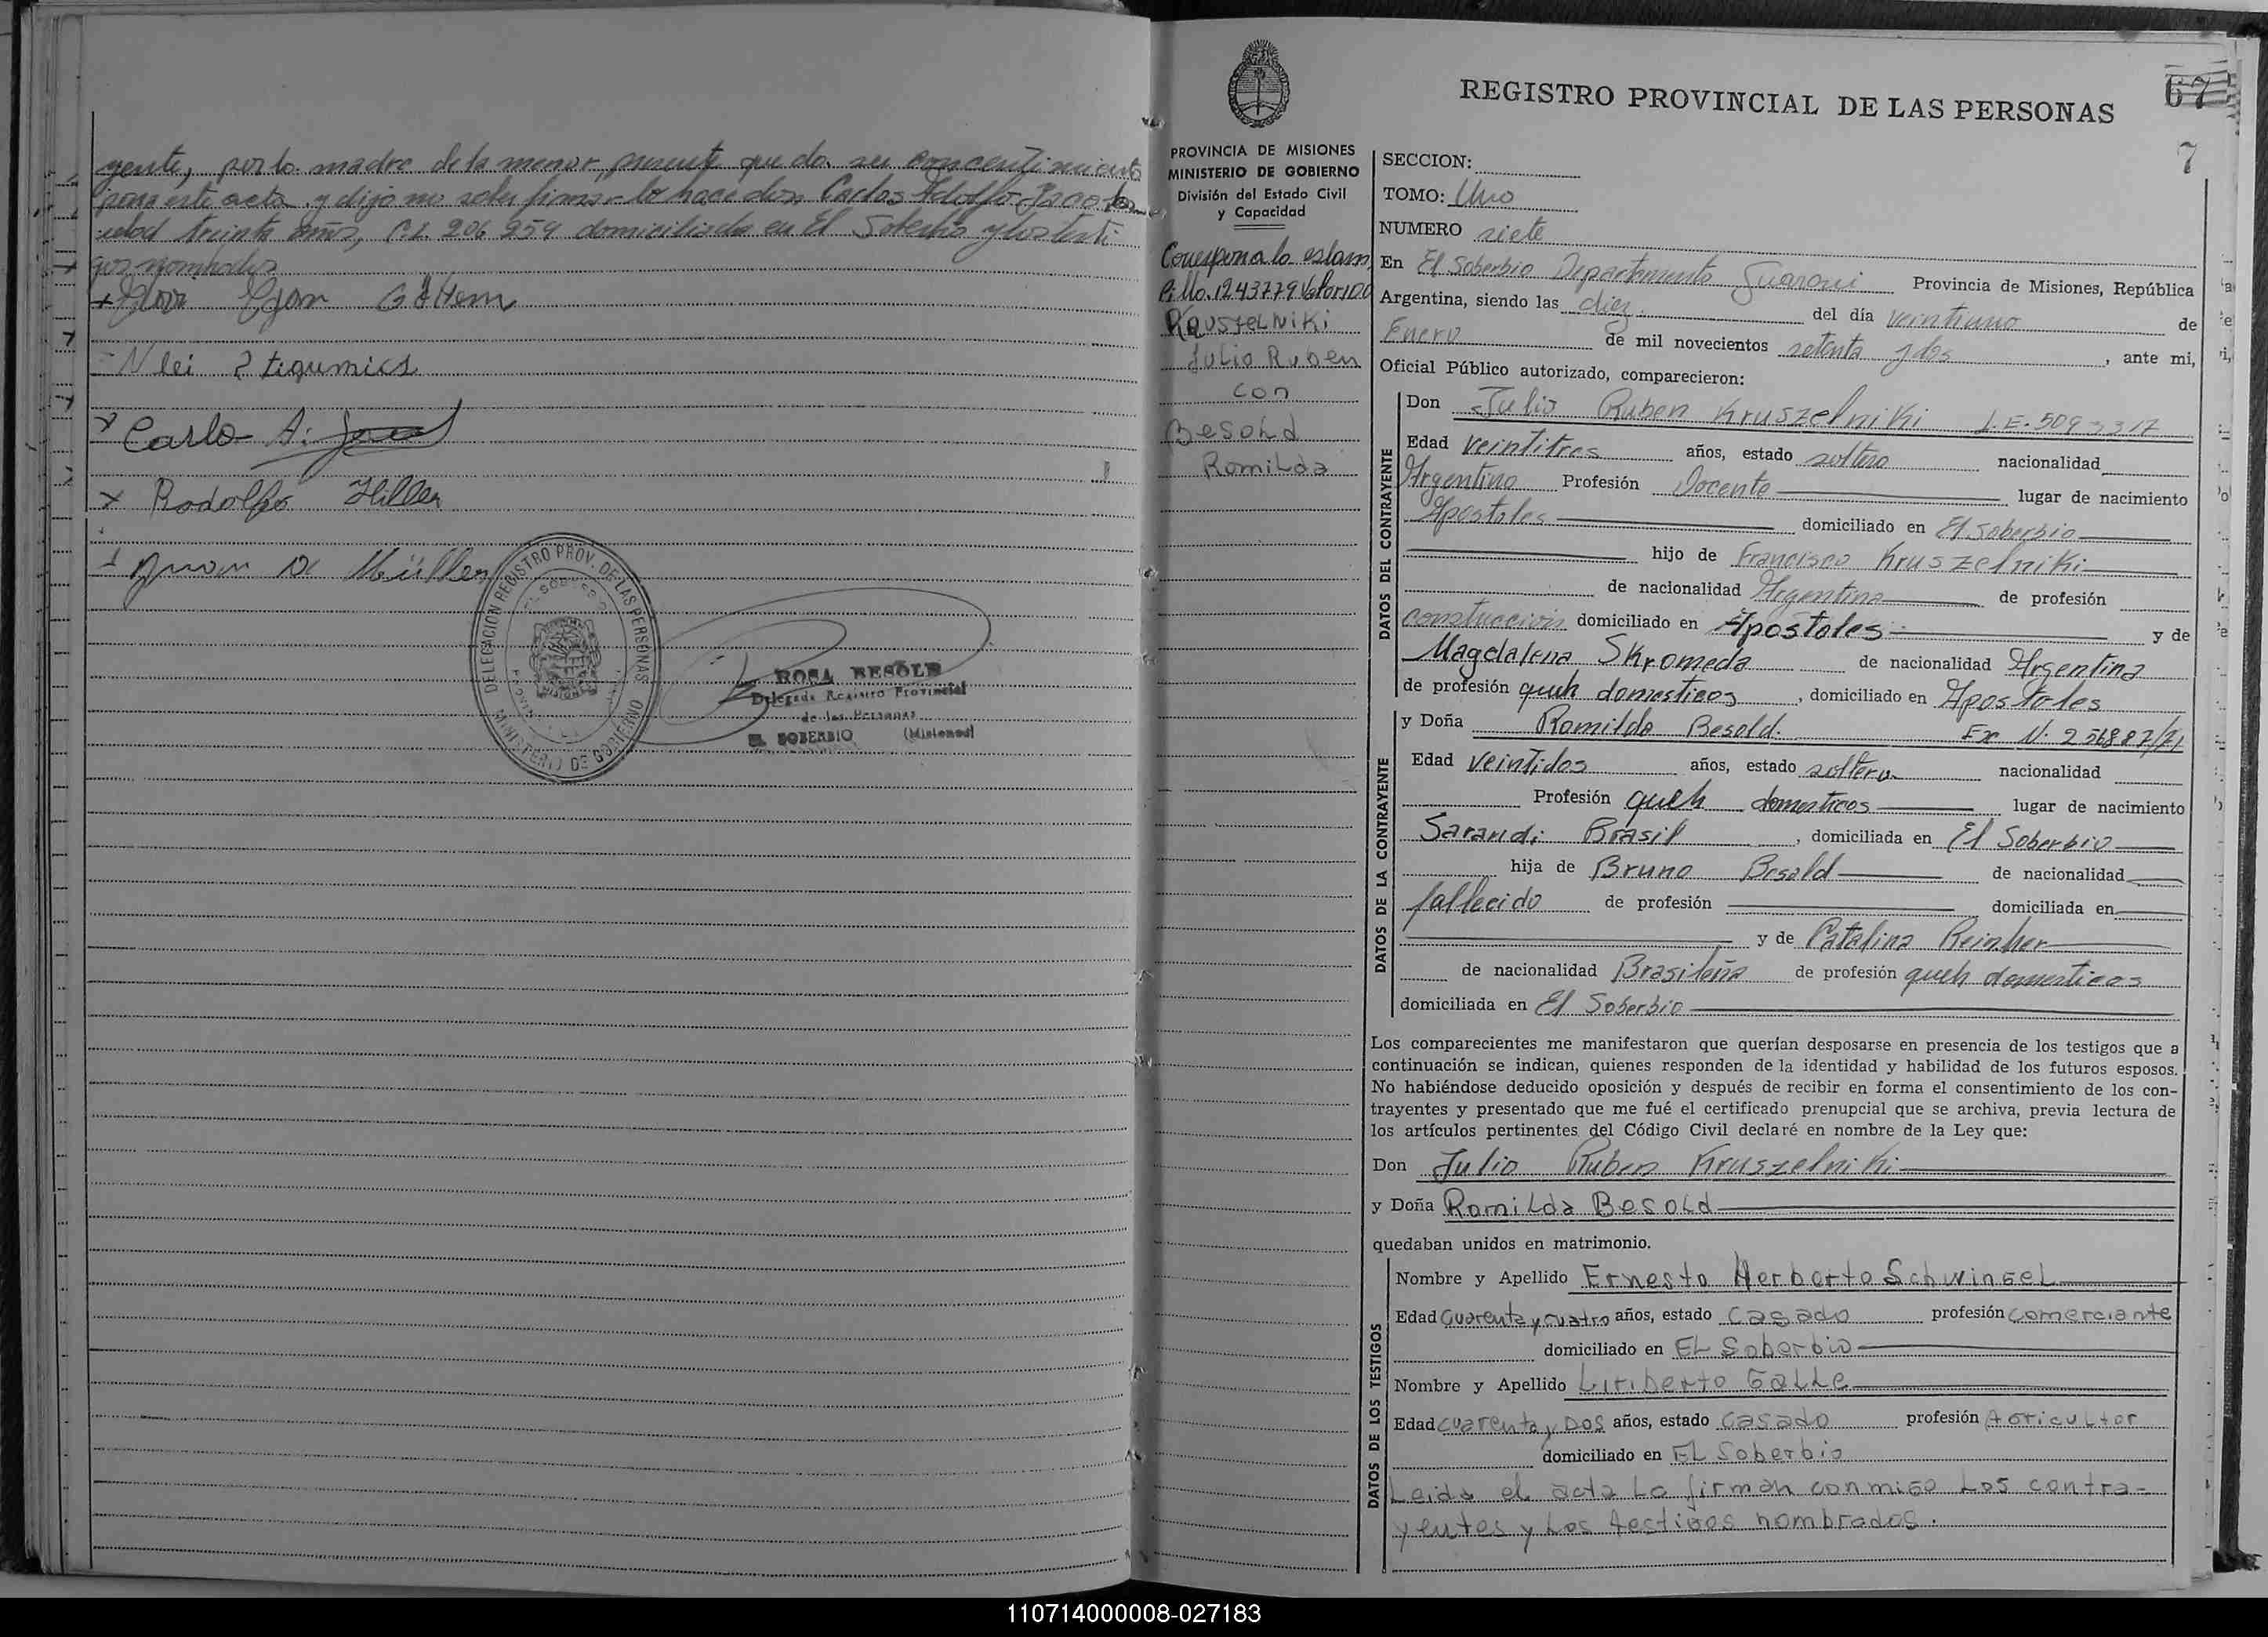 gente, por la madre de la menor, presente que da su concentimiento
para este acta, y dijo no saber firmar lo hace don Carlos Adolfo
edad treinta años, C.I. 206 259 domiciliado en El Soberbio y los testi
gos nombrados
Egon Gottem
Carlo A.
Rodolfo Hiller
Müller
DELEGACION REGISTRO PROV. DE LAS PERSONAS
MINISTERIO DE GOBIERNO
EL SOBERBIO
MISIONES
ROSA BESOLD
Delegada Registro Provincial
de las Personas
EL SOBERBIO (Misiones)
PROVINCIA DE MISIONES
MINISTERIO DE GOBIERNO
División del Estado Civil
y Capacidad
Corespona la estam
pilla. 1243779 Valor 100
KRUSZELNIKI
Julio Ruben
con
Besold
Romilda
REGISTRO PROVINCIAL DE LAS PERSONAS
67
7
SECCION:
TOMO: Uno
NUMERO siete
En El Soberbio Departamento Guarani Provincia de Misiones, República
Argentina, siendo las diez. del día veintiuno de
Enero de mil novecientos setenta y dos, ante mi,
Oficial Público autorizado, comparecieron:
DATOS DEL CONTRAYENTE
Don Julio Ruben Kruszelniki L.E. 5093317
Edad veintitres años, estado soltero nacionalidad
Argentino Profesión Docente lugar de nacimiento
Apostoles domiciliado en El Soberbio
hijo de Francisco Kruszelniki
de nacionalidad Argentina de profesión
construccion domiciliado en Apostoles y de
Magdalena Skromeda de nacionalidad Argentina
de profesión queh domesticos, domiciliado en Apostoles
DATOS DE LA CONTRAYENTE
y Doña Romilda Besold. Ex N. 256887/71
Edad veintidos años, estado soltera nacionalidad
Profesión queh domesticos lugar de nacimiento
Sarandi Brasil, domiciliada en El Soberbio
hija de Bruno Besold de nacionalidad
fallecido de profesión domiciliada en
y de Catalina Reinher
de nacionalidad Brasileña de profesión queh domesticos
domiciliada en El Soberbio
Los comparecientes me manifestaron que querían desposarse en presencia de los testigos que a
continuación se indican, quienes responden de la identidad y habilidad de los futuros esposos.
No habiéndose deducido oposición y después de recibir en forma el consentimiento de los con-
trayentes y presentado que me fué el certificado prenupcial que se archiva, previa lectura de
los artículos pertinentes del Código Civil declaré en nombre de la Ley que:
Don Julio Ruben Kruszelniki
y Doña Romilda Besold
quedaban unidos en matrimonio.
DATOS DE LOS TESTIGOS
Nombre y Apellido Ernesto Herberto Schwingel
Edad cuarenta y cuatro años, estado casado profesión comerciante
domiciliado en EL Soberbio
Nombre y Apellido Liriberto Galle
Edad cuarenta y dos años, estado casado profesión Agricultor
domiciliado en EL Soberbio
Leida el acta La firman conmigo Los contra-
yentes y Los testigos nombrados.
110714000008-027183